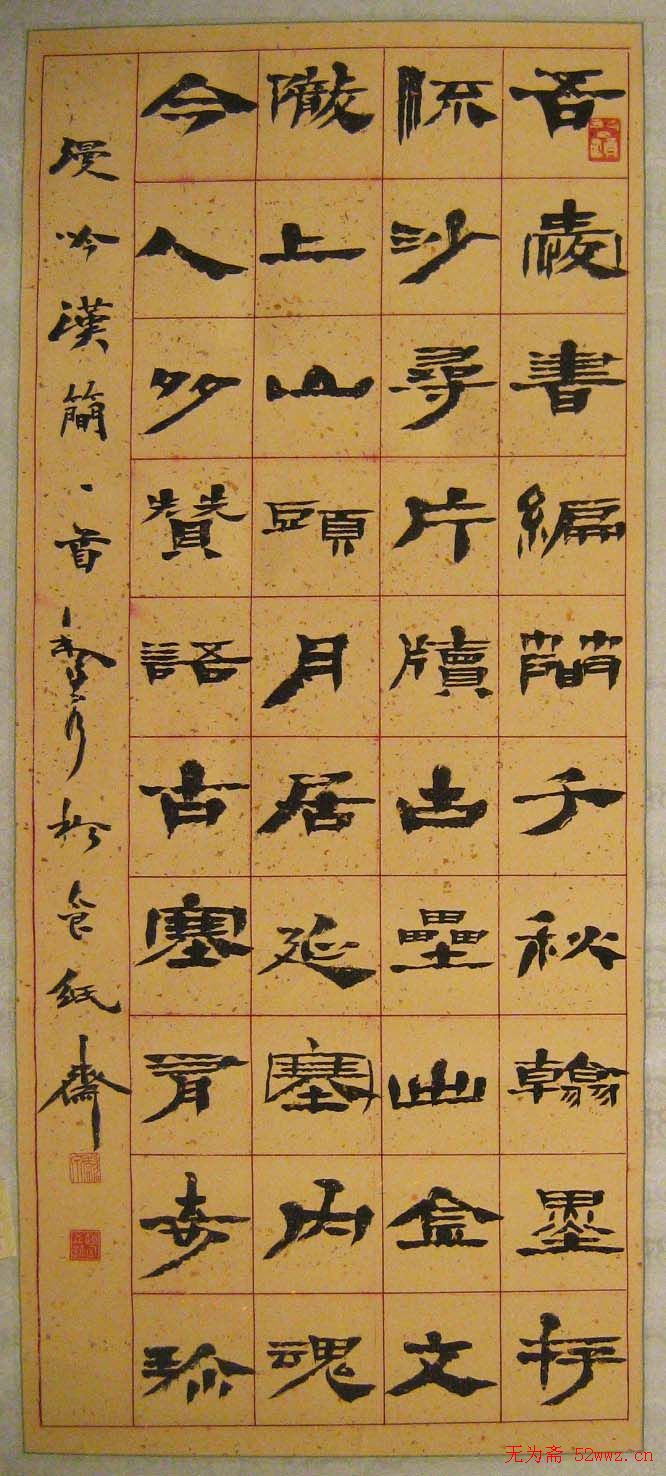 吾書編簡千秋翰墨存
流沙尋片牘古壘出金文
隴上山頭月居延塞内魂
今人多贊語古塞有奇珍
漫吟漢簡一首 於食紙齋
无为斋 52wwz.cn